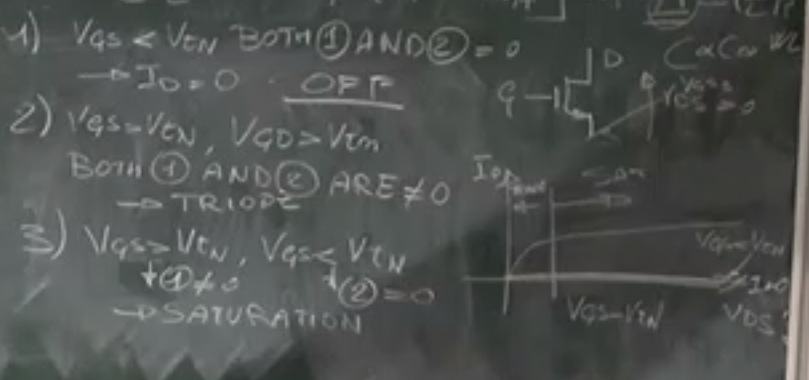 1) VGS < VtN BOTH ① AND ② = 0
→ ID = 0 OFF
2) VGS > VtN, VGD > Vtn
BOTH ① AND ② ARE ≠ 0
→ TRIODE
3) VGS > VtN, VGS < VtN
↓ ① ≠ 0 ↓ (2) = 0
→ SATURATION
D
G
Cox
ID
SAT
VGS < VtN
VGS - VtN
VDS